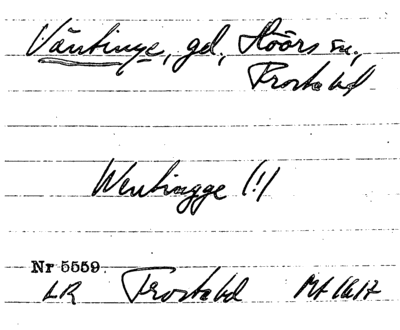 Väntinge, gd, Höörs sn,
Frosta hd
Wentingge (!)
Nr 5559
LR Frosta hd Mt 1617